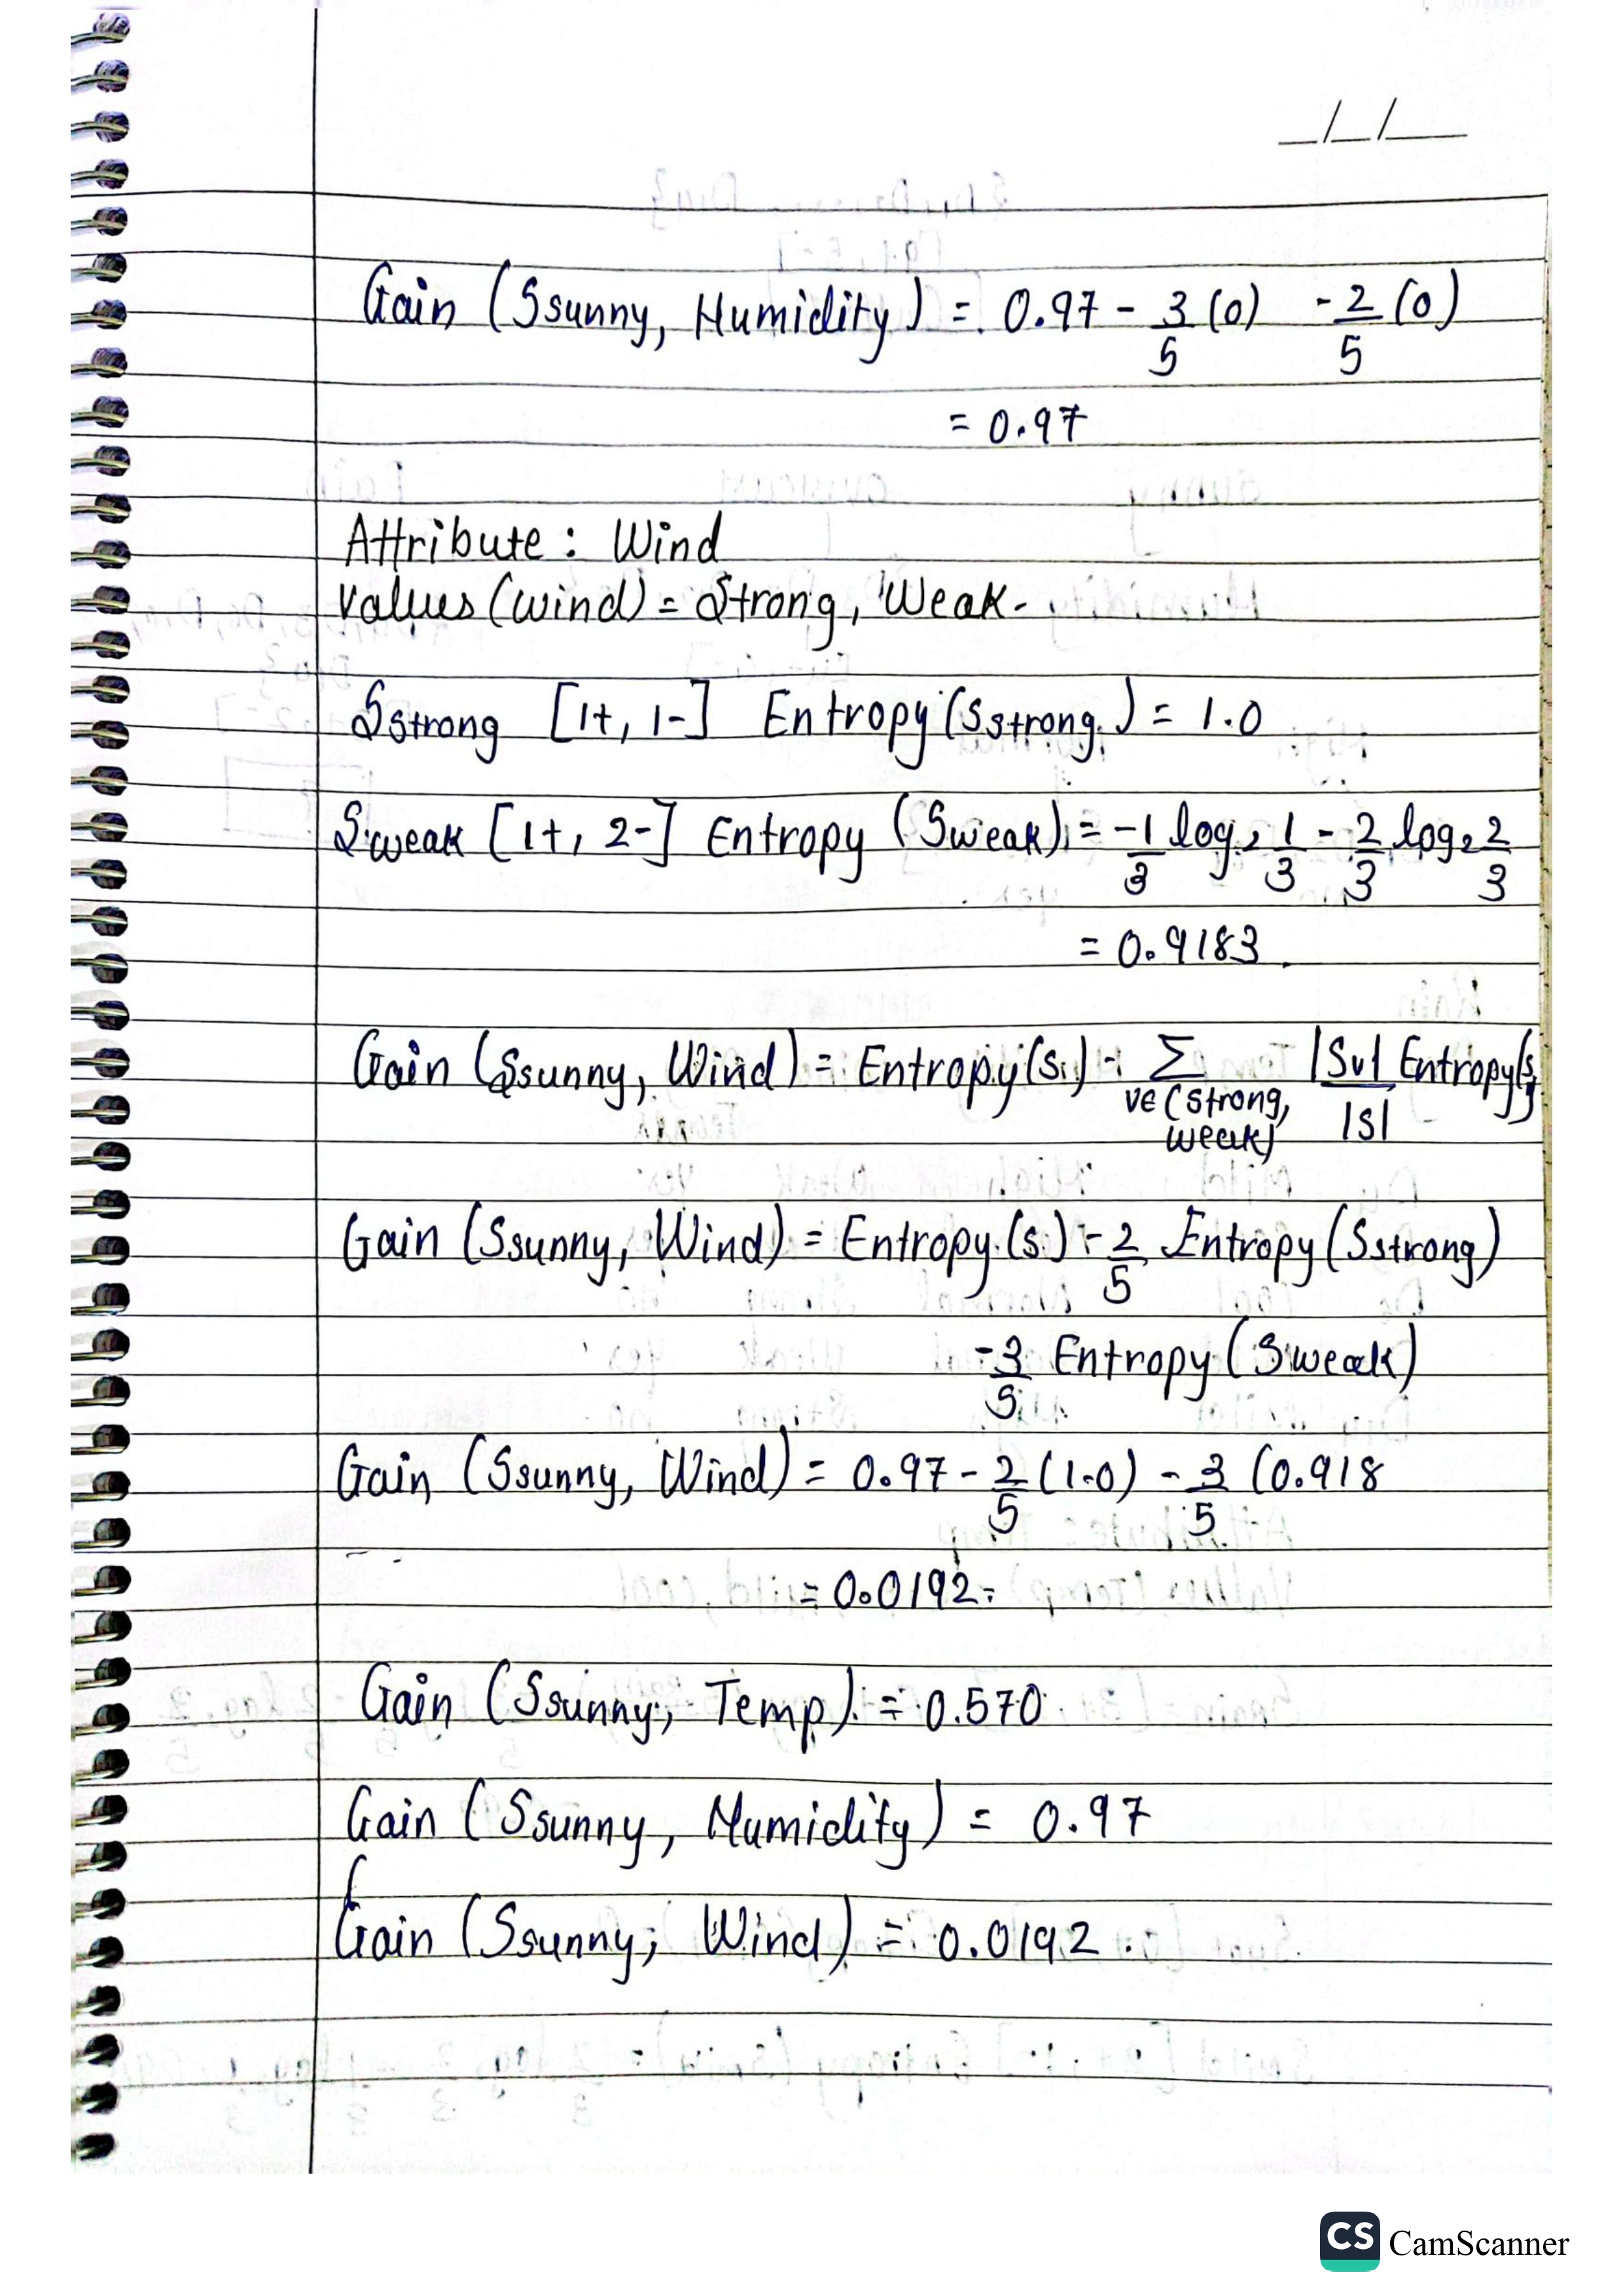 _/_/__
Gain (Ssunny, Humidity) = 0.97 - 3/5 (0) - 2/5 (0)
= 0.97
Attribute : Wind
Values (wind) = Strong, Weak.
Sstrong [1+, 1-] Entropy (Sstrong) = 1.0
Sweak [1+, 2-] Entropy (Sweak) = -1/3 log2 1/3 - 2/3 log2 2/3
= 0.9183
Gain (Ssunny, Wind) = Entropy (S) - Σ v∈(strong, weak) |Sv|/|S| Entropy(S
Gain (Ssunny, Wind) = Entropy (S) - 2/5 Entropy (Sstrong)
- 3/5 Entropy (Sweak)
Gain (Ssunny, Wind) = 0.97 - 2/5 (1.0) - 3/5 (0.918
= 0.0192
Gain (Ssunny, Temp) = 0.570
Gain (Ssunny, Humidity) = 0.97
Gain (Ssunny, Wind) = 0.0192
CS CamScanner